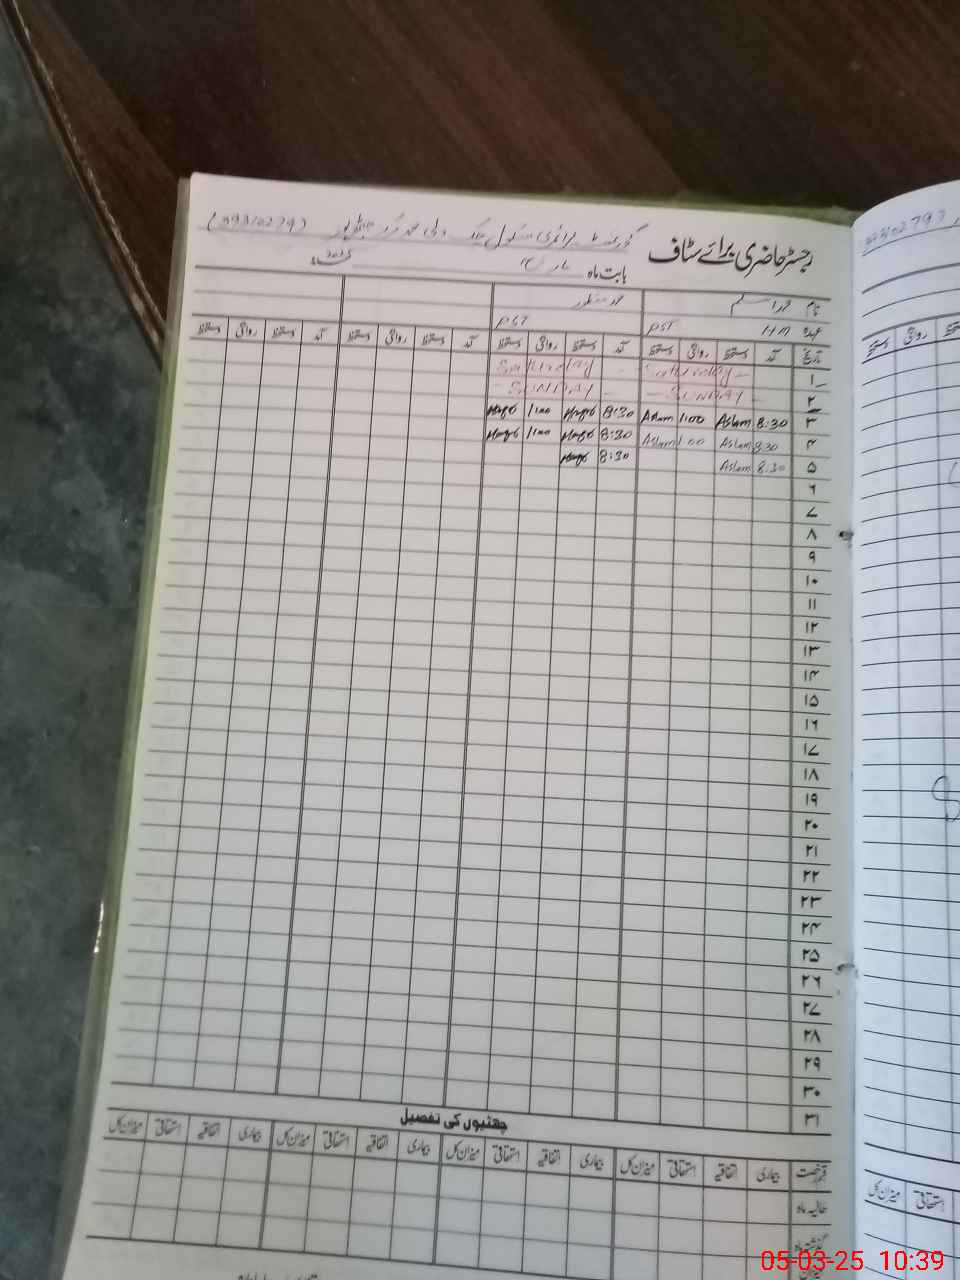 رجسٹر حاضری برائے سٹاف گورنمنٹ پرائمری سکول چک (39310279)
بابت ماہ مارچ
نام محمد اسلم محمد منظور
عہدہ HM PST PST
تاریخ آمد دستخط روانگی دستخط آمد دستخط روانگی دستخط آمد دستخط روانگی دستخط آمد دستخط روانگی دستخط
۱ - Saturday - - Saturday
۲ - SUNDAY - - SUNDAY -
۳ 8:30 Aslam 1:00 Aslam 8:30 1:00
۴ 8:30 Aslam 1:00 Aslam 8:30 1:00
۵ 8:30 Aslam 8:30
۶
۷
۸
۹
۱۰
۱۱
۱۲
۱۳
۱۴
۱۵
۱۶
۱۷
۱۸
۱۹
۲۰
۲۱
۲۲
۲۳
۲۴
۲۵
۲۶
۲۷
۲۸
۲۹
۳۰
۳۱
چھٹیوں کی تفصیل
قسم رخصت بیماری اتفاقیہ استحقاقی میزان کل بیماری اتفاقیہ استحقاقی میزان کل بیماری اتفاقیہ استحقاقی میزان کل بیماری اتفاقیہ استحقاقی میزان کل
حالیہ ماہ
گذشتہ ماہ
دستخط روانگی
میزان کل استحقاقی
05-03-25 10:39